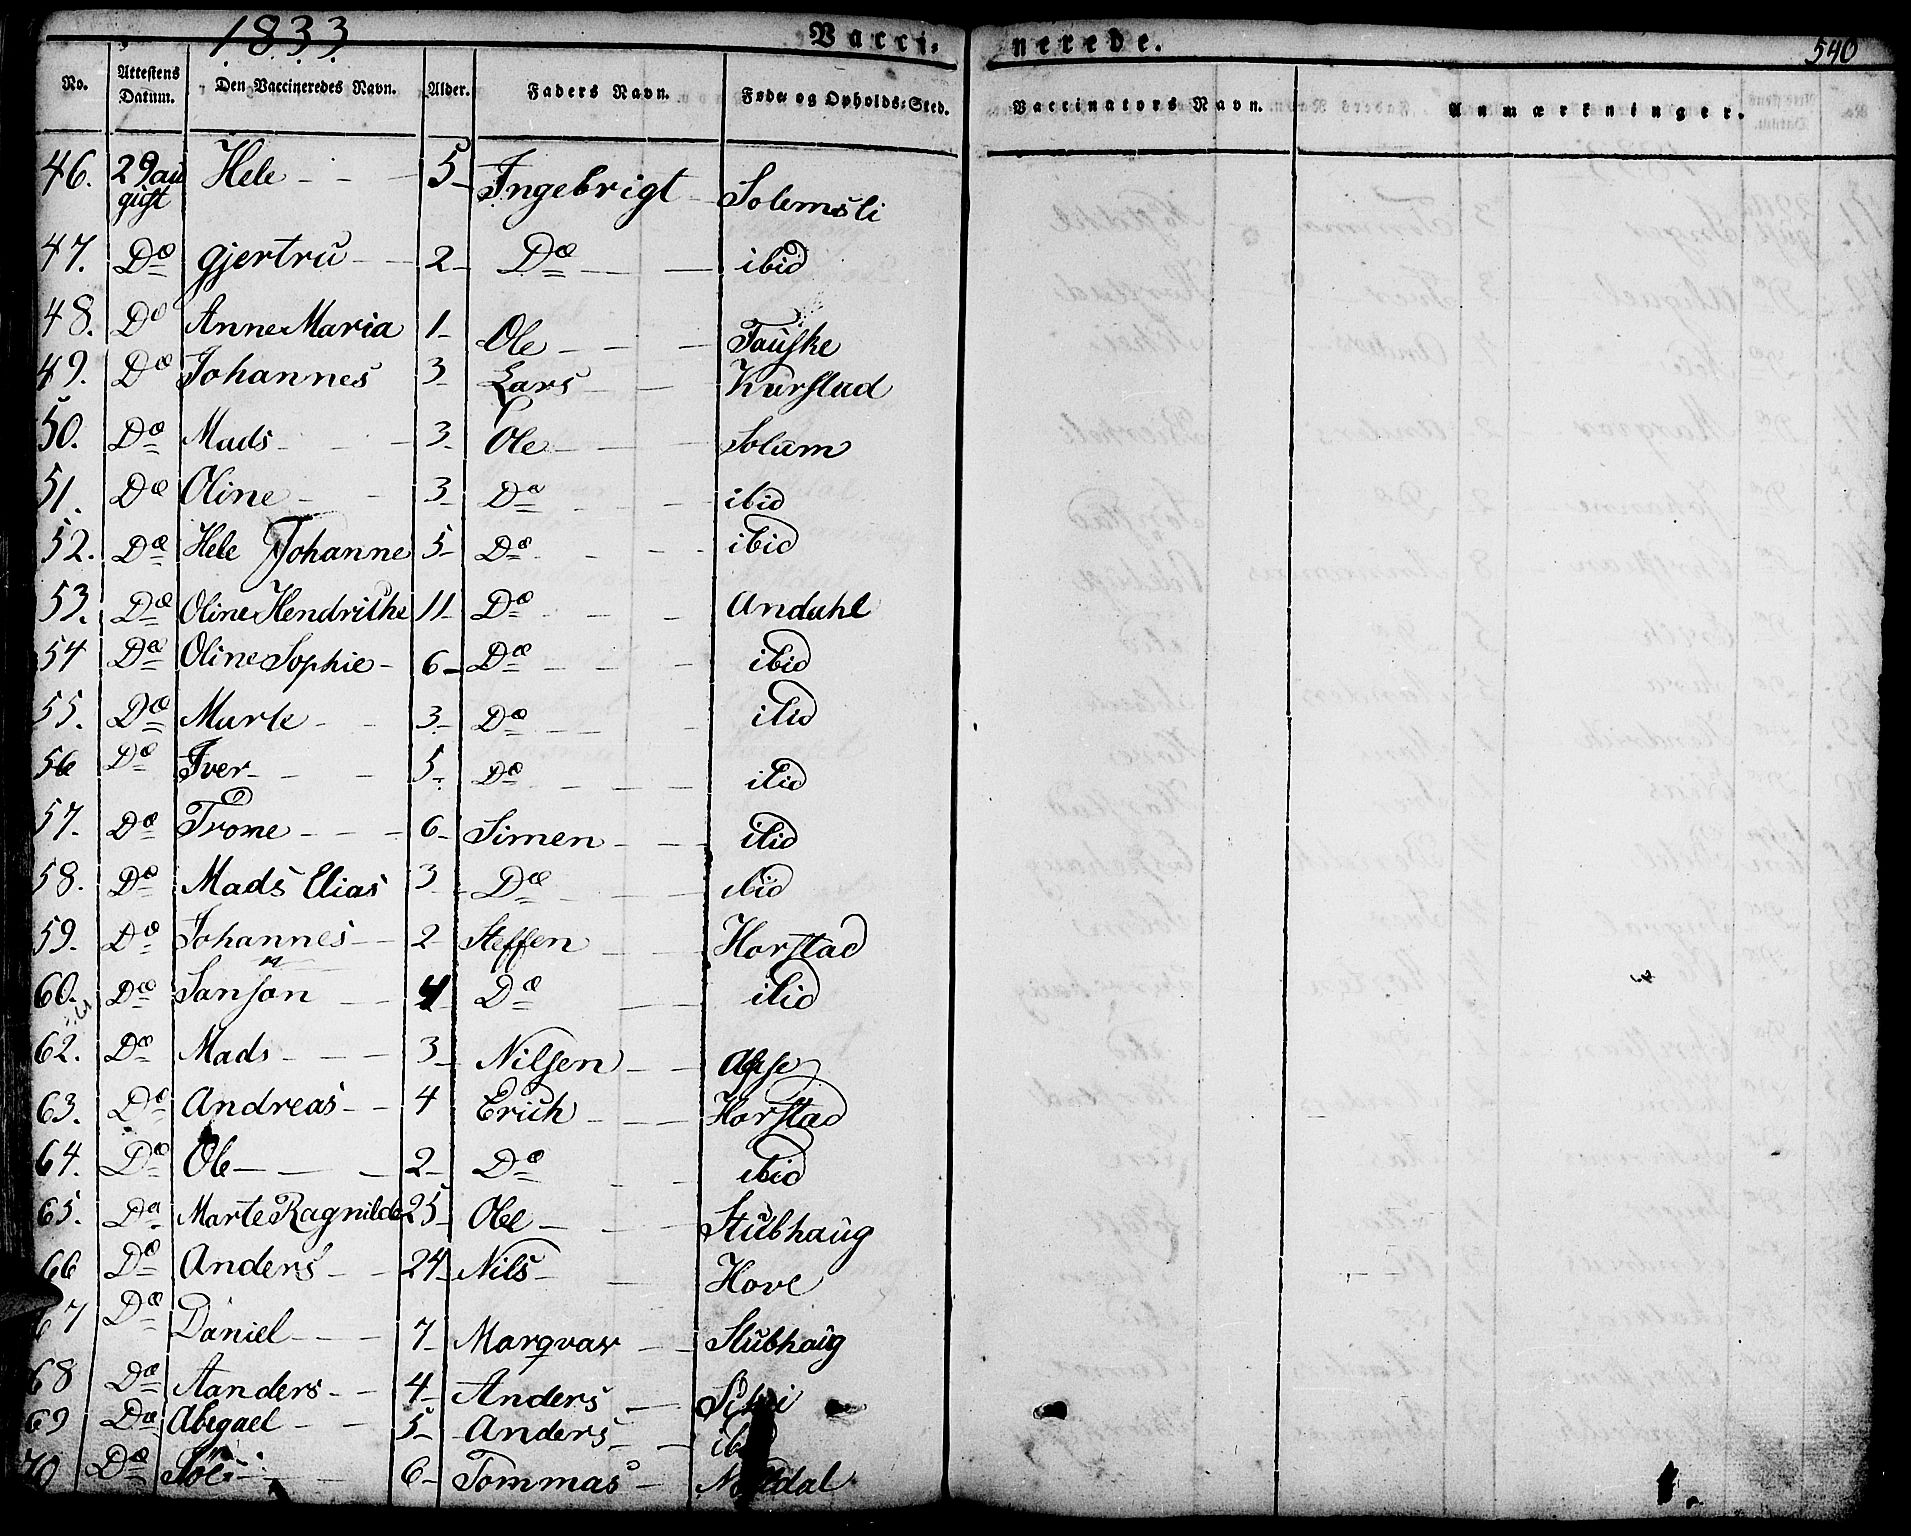 1833 Vacci- nerede. 540
No. Attestens Datum. Den Vaccineredes Navn. Alder. Faders Navn. Føde og Opholds-Sted. Vaccinators Navn. Anmærkninger.
46. 29 au gust Hele - - 5 - Ingebrigt - Solemsli
47. Do gjertru - - 2 - Do - - ibid
48. Do Anne Maria 1 - Ole - - - Fauske
49. Do Johannes 3 - Lars - - Kurstad
50. Do Mads - - - 3 - Ole - - - Solum
51. Do Oline - - 3 - Do - - - ibid
52. Do Hele Johanne 5 - Do - - - ibid
53. Do Oline Hendrikke 11 - Do - - - Andahl
54 Do Oline Sophie - 6 - Do - - - ibid
55. Do Marte - - 3 - Do - - - ibid
56 Do Iver - - - 5 - Do - - - ibid
57. Do Trone - - - 6 - Simen - - - ibid
58. Do Mads Elias 3 - Do - - - ibid
59. Do Johannes - - 2 - Steffen - - - Horstad
60. Do - - 4 Do - - ibid
62. Do Mads - - - 3 - Nilsen - -
63. Do Andreas - - 4 Erich - - - Horstad
64. Do Ole - - - 2 - Do - - ibid
65. Do Marte Ragnilde 25 - Ole - - - Stubhaug
66 Do Anders - - 24 - Nils - - Hove
67 Do Daniel - - - 7 - Marqvar - - Stubhaug
68 Do Aanders - - 4 - Anders -
69 Do Abegael - - 5 - Anders - - ibid
70 Do - - 6 - Tommas -